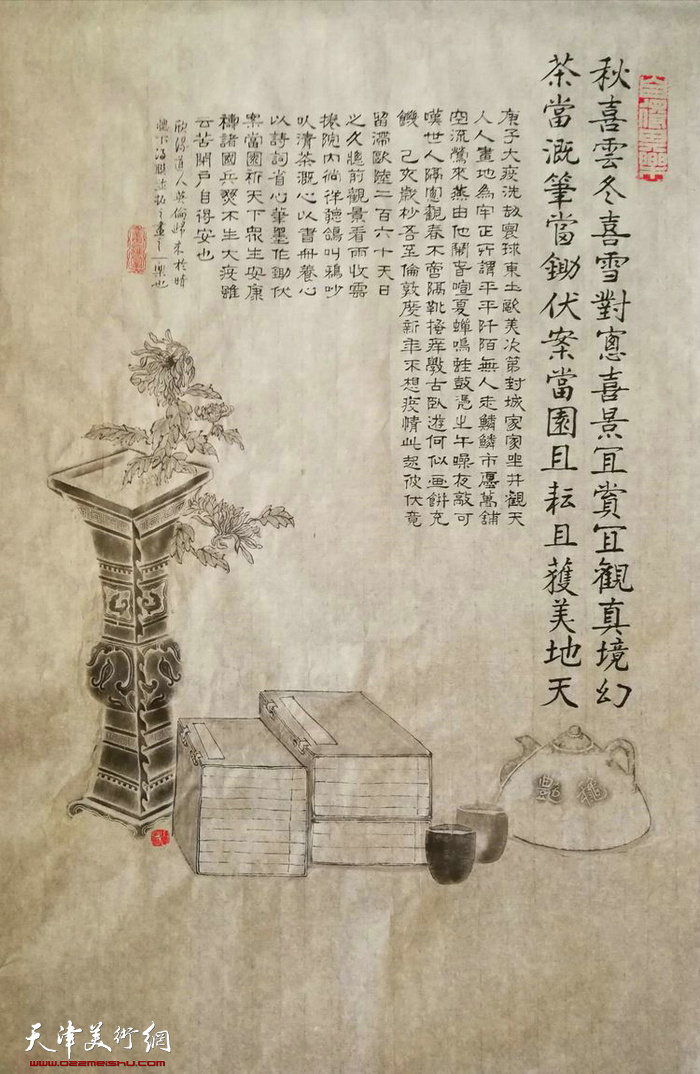 秋喜雲冬喜雪對窻喜景宜賞宜觀真境幻
茶當溉筆當鋤伏案當園且耘且蒦美地天
庚子大疫洗劫寰球東土歐美次第封城家家坐井觀天
人人畫地為牢正所謂平平阡陌無人走鱗鱗市廛萬舖
空流鶯來燕由他鬧音喧夏蟬鳴蛙鼓憑生午噪夜敲可
嘆世人隔窻觀春不啻隔靴搔痒斅古臥遊何似画餅充
饑 己亥歲杪吾至倫敦度新年不想疫情此起彼伏竟
留滯歐陸二百六十天日
之久牕前觀景看雨收雲
捲院内徜徉聽鴿叫鴉吵
以清茶溉心以書冊養心
以詩詞省心筆墨作鋤伏
案當園祈天下衆生安康
禱諸國兵燹不生大疫雖
云苦閉戶自得安也
道人英倫歸來於時
之畫之一樂也
天津美術網
www.022meishu.com